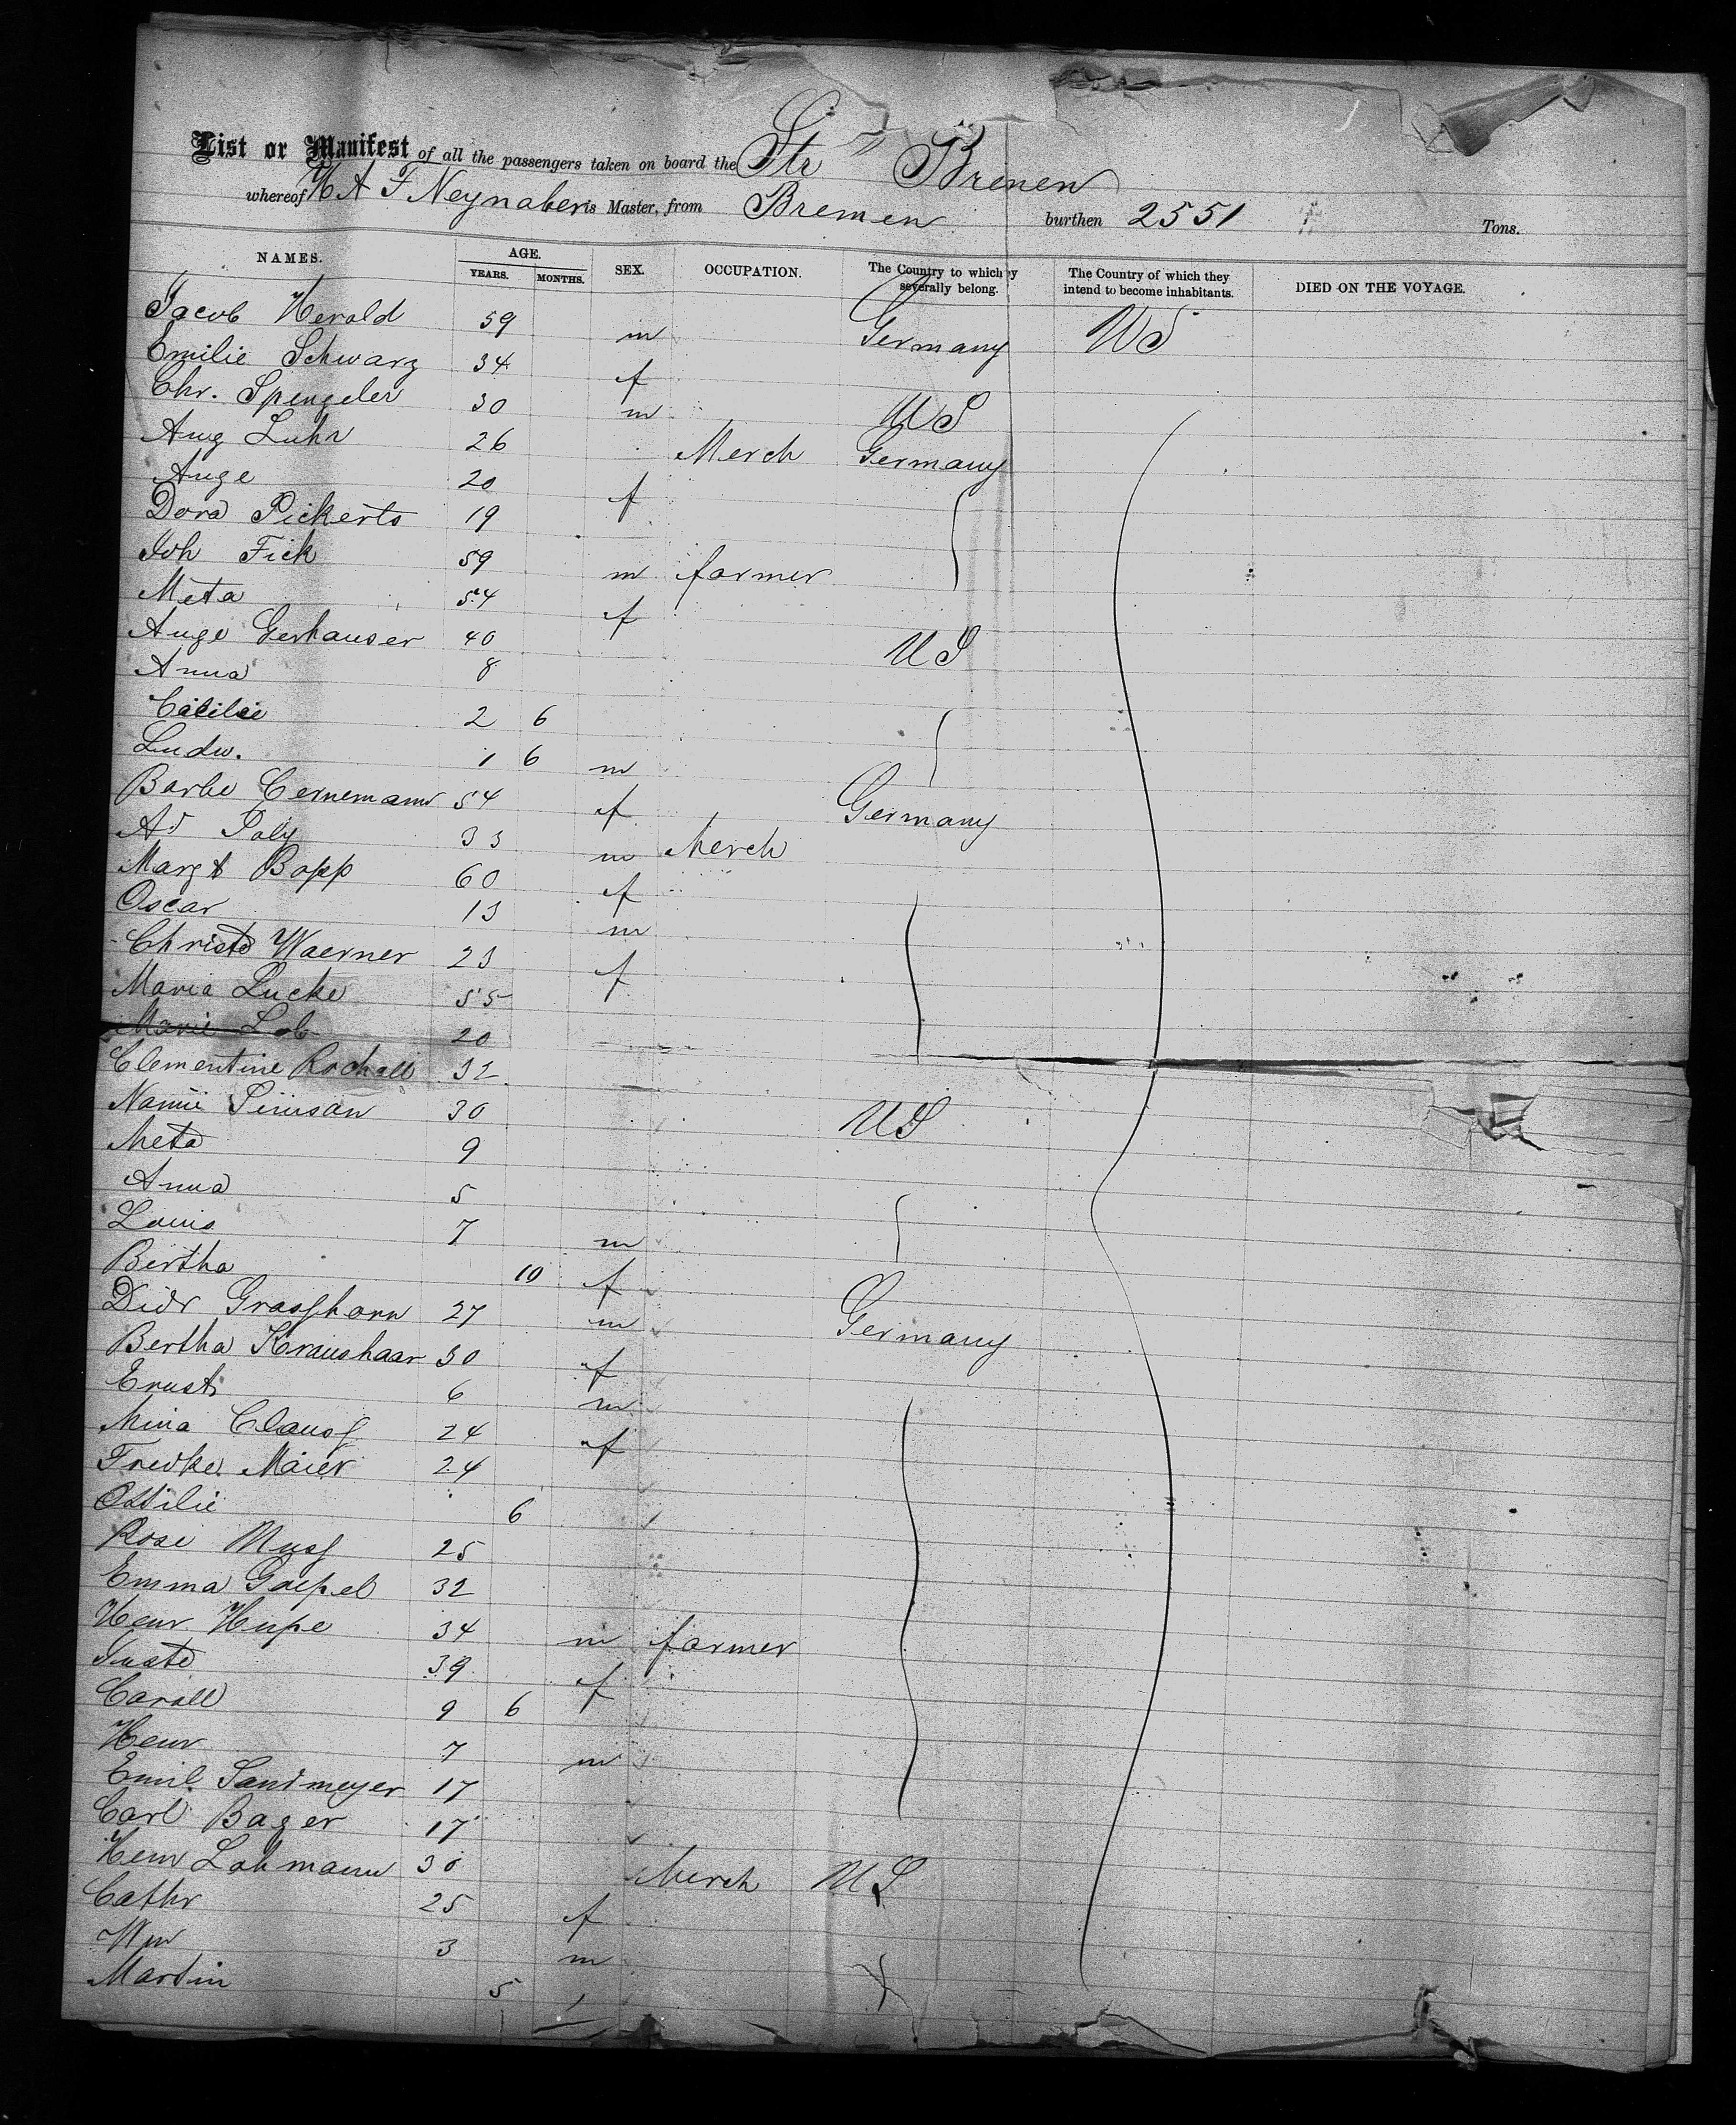 List or Manifest of all the passengers taken on board the Str Bremen
whereof H A F Neynaber is Master, from Bremen burthen 2551 Tons.
NAMES. AGE. YEARS. MONTHS. SEX. OCCUPATION. The Country to which they severally belong. The Country of which they intend to become inhabitants. DIED ON THE VOYAGE.
Jacob Herold 59 m Germany US
Emilie Schwarz 34 f
Chr. Spengeler 30 m US
Aug Luhr 26 Merch Germany
Auge 20 f
Dora Pickerts 19
Joh Fick 59 m farmer
Meta 54 f
Auge Gerhauser 40 US
Anna 8
Cäcilie 2 6
Ludw. 1 6 m
Barbe Cernemann 54 f Germany
Ad Poly 33 m Merch
Margt Bopp 60 f
Oscar 13 m
Christe Waerner 23 f
Maria Lucke 55
Marie Lob 20
Clementine Rochall 32
Nannie Simson 30 US
Meta 9
Anna 5
Louis 7 m
Bertha 10 f
Didr Grashorn 27 m Germany
Bertha Kraushaar 30 f
Ernst 6 m
Mina Clauss 24 f
Fredke Maier 24
Ottilie 6
Rosi Muss 25
Emma Goepel 32
Henr Hupe 34 m farmer
Juste 39 f
Caroll 9 6
Henr 7 m
Emil Sandmeyer 17
Carl Bager 17
Henr Lohmann 30 Merch US
Cathr 25 f
Wm 3 m
Martin 5